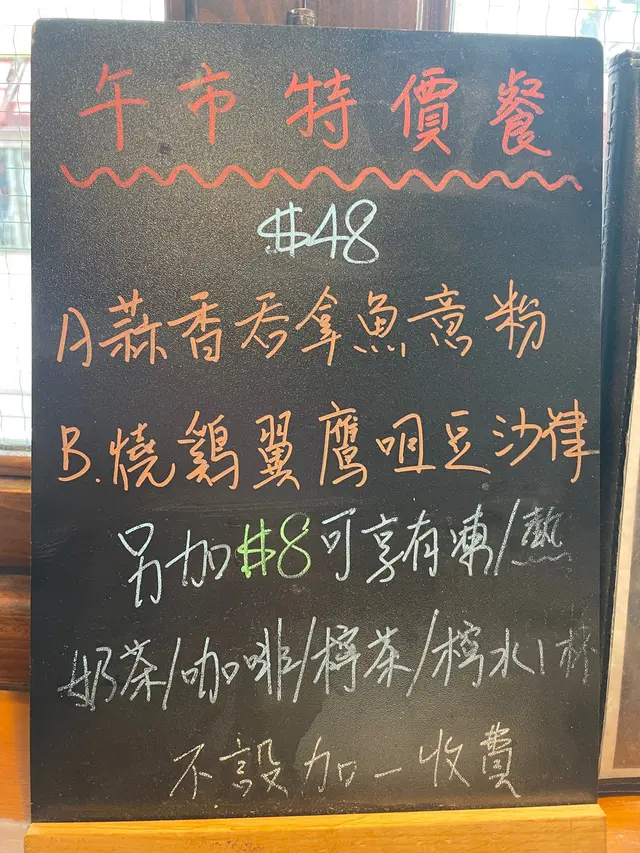 午市特價餐
$48
A蒜香吞拿魚意粉
B.燒鷄翼鷹咀豆沙律
另加$8可享有凍/熱
奶茶/咖啡/檸茶/檸水1杯
不設加一收費